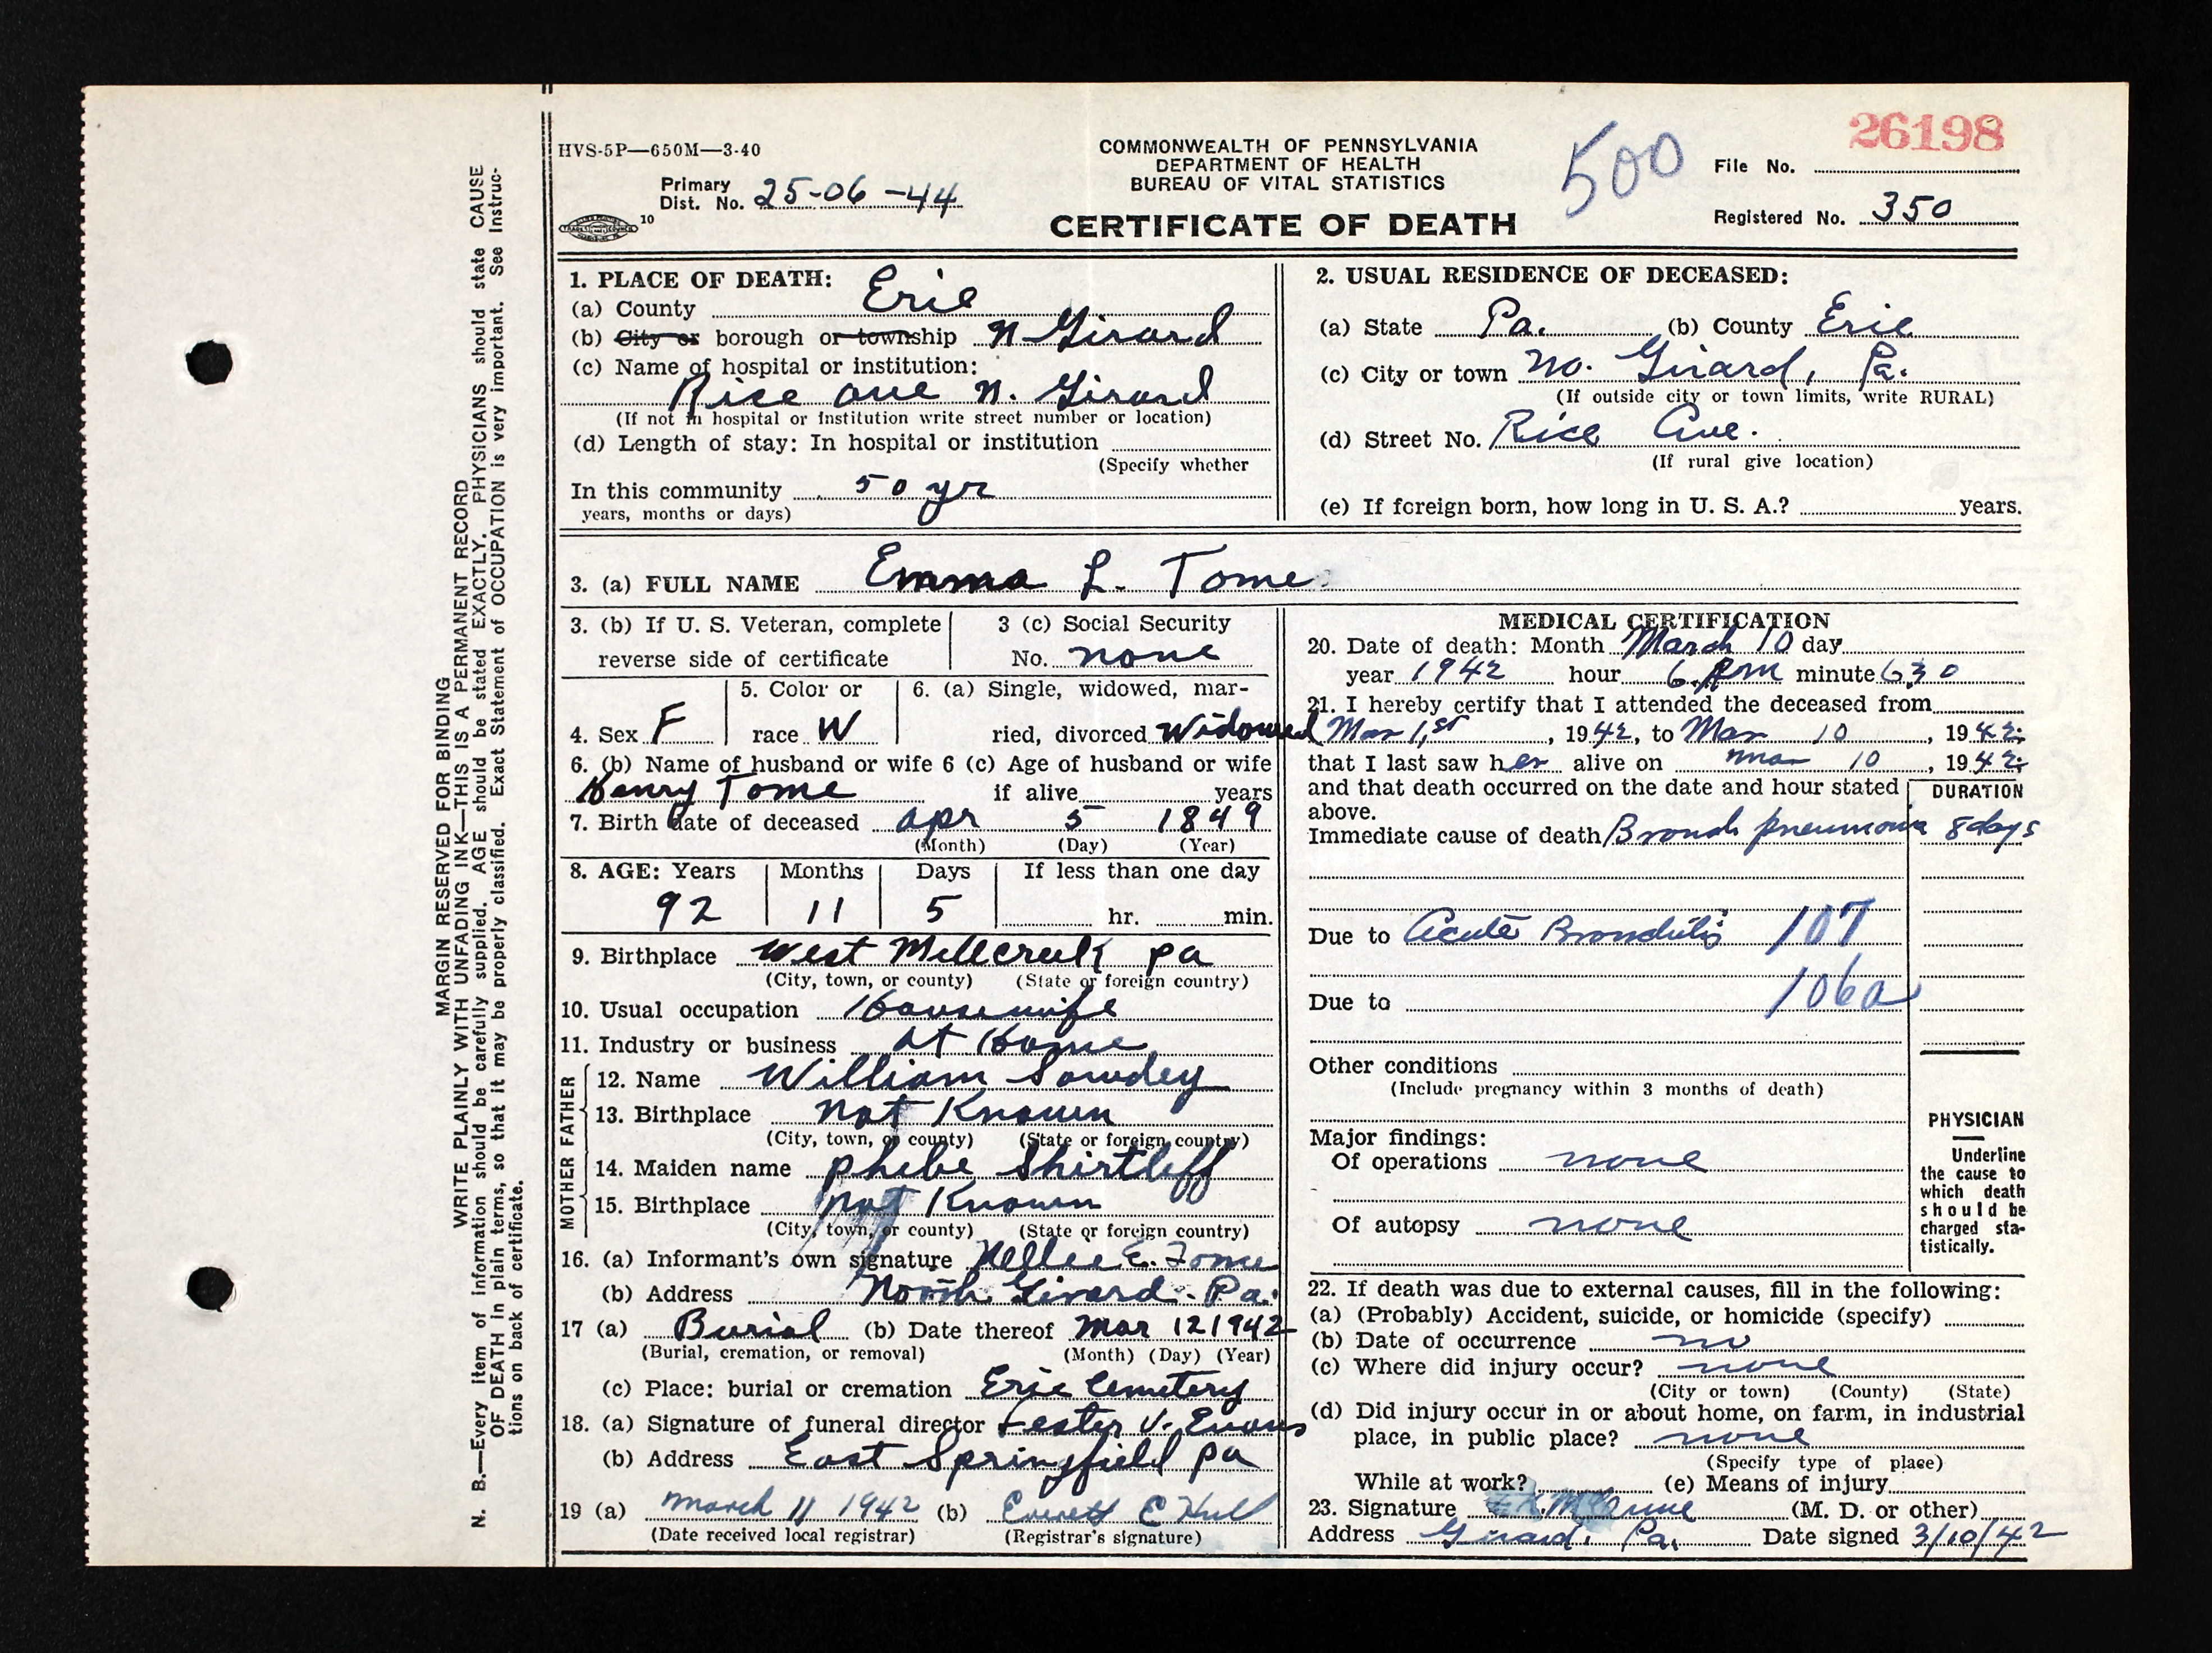 26198
HVS-5P—650M—3-40
COMMONWEALTH OF PENNSYLVANIA
DEPARTMENT OF HEALTH
BUREAU OF VITAL STATISTICS
500
File No.
Primary Dist. No. 25-06-44
10
CERTIFICATE OF DEATH
Registered No. 350
1. PLACE OF DEATH:
(a) County Erie
(b) City or borough or township N Girard
(c) Name of hospital or institution:
Rice ave N. Girard
(If not in hospital or institution write street number or location)
(d) Length of stay: In hospital or institution
(Specify whether
In this community 50 yr
years, months or days)
2. USUAL RESIDENCE OF DECEASED:
(a) State Pa. (b) County Erie
(c) City or town No. Girard, Pa.
(If outside city or town limits, write RURAL)
(d) Street No. Rice Ave.
(If rural give location)
(e) If foreign born, how long in U. S. A.? years.
3. (a) FULL NAME Emma L. Tome
3. (b) If U. S. Veteran, complete
reverse side of certificate
3 (c) Social Security
No. none
4. Sex F
5. Color or
race W
6. (a) Single, widowed, mar-
ried, divorced Widowed
6. (b) Name of husband or wife
Henry Tome
6 (c) Age of husband or wife
if alive years
7. Birth date of deceased apr 5 1849
(Month) (Day) (Year)
8. AGE: Years Months Days If less than one day
92 11 5 hr. min.
9. Birthplace West Millcreek Pa
(City, town, or county) (State or foreign country)
10. Usual occupation Housewife
11. Industry or business at Home
FATHER
12. Name William Sowdey
13. Birthplace not Known
(City, town, or county) (State or foreign country)
MOTHER
14. Maiden name Phebe Shirtleff
15. Birthplace not Known
(City, town, or county) (State or foreign country)
16. (a) Informant's own signature Nellie E. Tome
(b) Address North Girard. Pa.
17 (a) Burial (b) Date thereof Mar 12 1942
(Burial, cremation, or removal) (Month) (Day) (Year)
(c) Place: burial or cremation Erie Cemetery
18. (a) Signature of funeral director Lester V. Evans
(b) Address East Springfield Pa
19 (a) March 11 1942 (b) Everett E Hull
(Date received local registrar) (Registrar's signature)
MEDICAL CERTIFICATION
20. Date of death: Month March 10 day
year 1942 hour 6 PM minute 630
21. I hereby certify that I attended the deceased from
Mar 1,st, 1942, to Mar 10, 1942;
that I last saw her alive on Mar 10, 1942;
and that death occurred on the date and hour stated
above.
DURATION
Immediate cause of death Bronch pneumonia 8 days
Due to Acute Bronchitis 107
106a
Due to
Other conditions
(Include pregnancy within 3 months of death)
Major findings:
Of operations none
Of autopsy none
PHYSICIAN
Underline
the cause to
which death
should be
charged sta-
tistically.
22. If death was due to external causes, fill in the following:
(a) (Probably) Accident, suicide, or homicide (specify)
(b) Date of occurrence no
(c) Where did injury occur? none
(City or town) (County) (State)
(d) Did injury occur in or about home, on farm, in industrial
place, in public place? none
(Specify type of place)
While at work? (e) Means of injury
23. Signature (M. D. or other)
Address Girard, Pa. Date signed 3/10/42
MARGIN RESERVED FOR BINDING
WRITE PLAINLY WITH UNFADING INK—THIS IS A PERMANENT RECORD
N. B.—Every item of information should be carefully supplied. AGE should be stated EXACTLY. PHYSICIANS should state CAUSE
OF DEATH in plain terms, so that it may be properly classified. Exact Statement of OCCUPATION is very important. See Instruc-
tions on back of certificate.